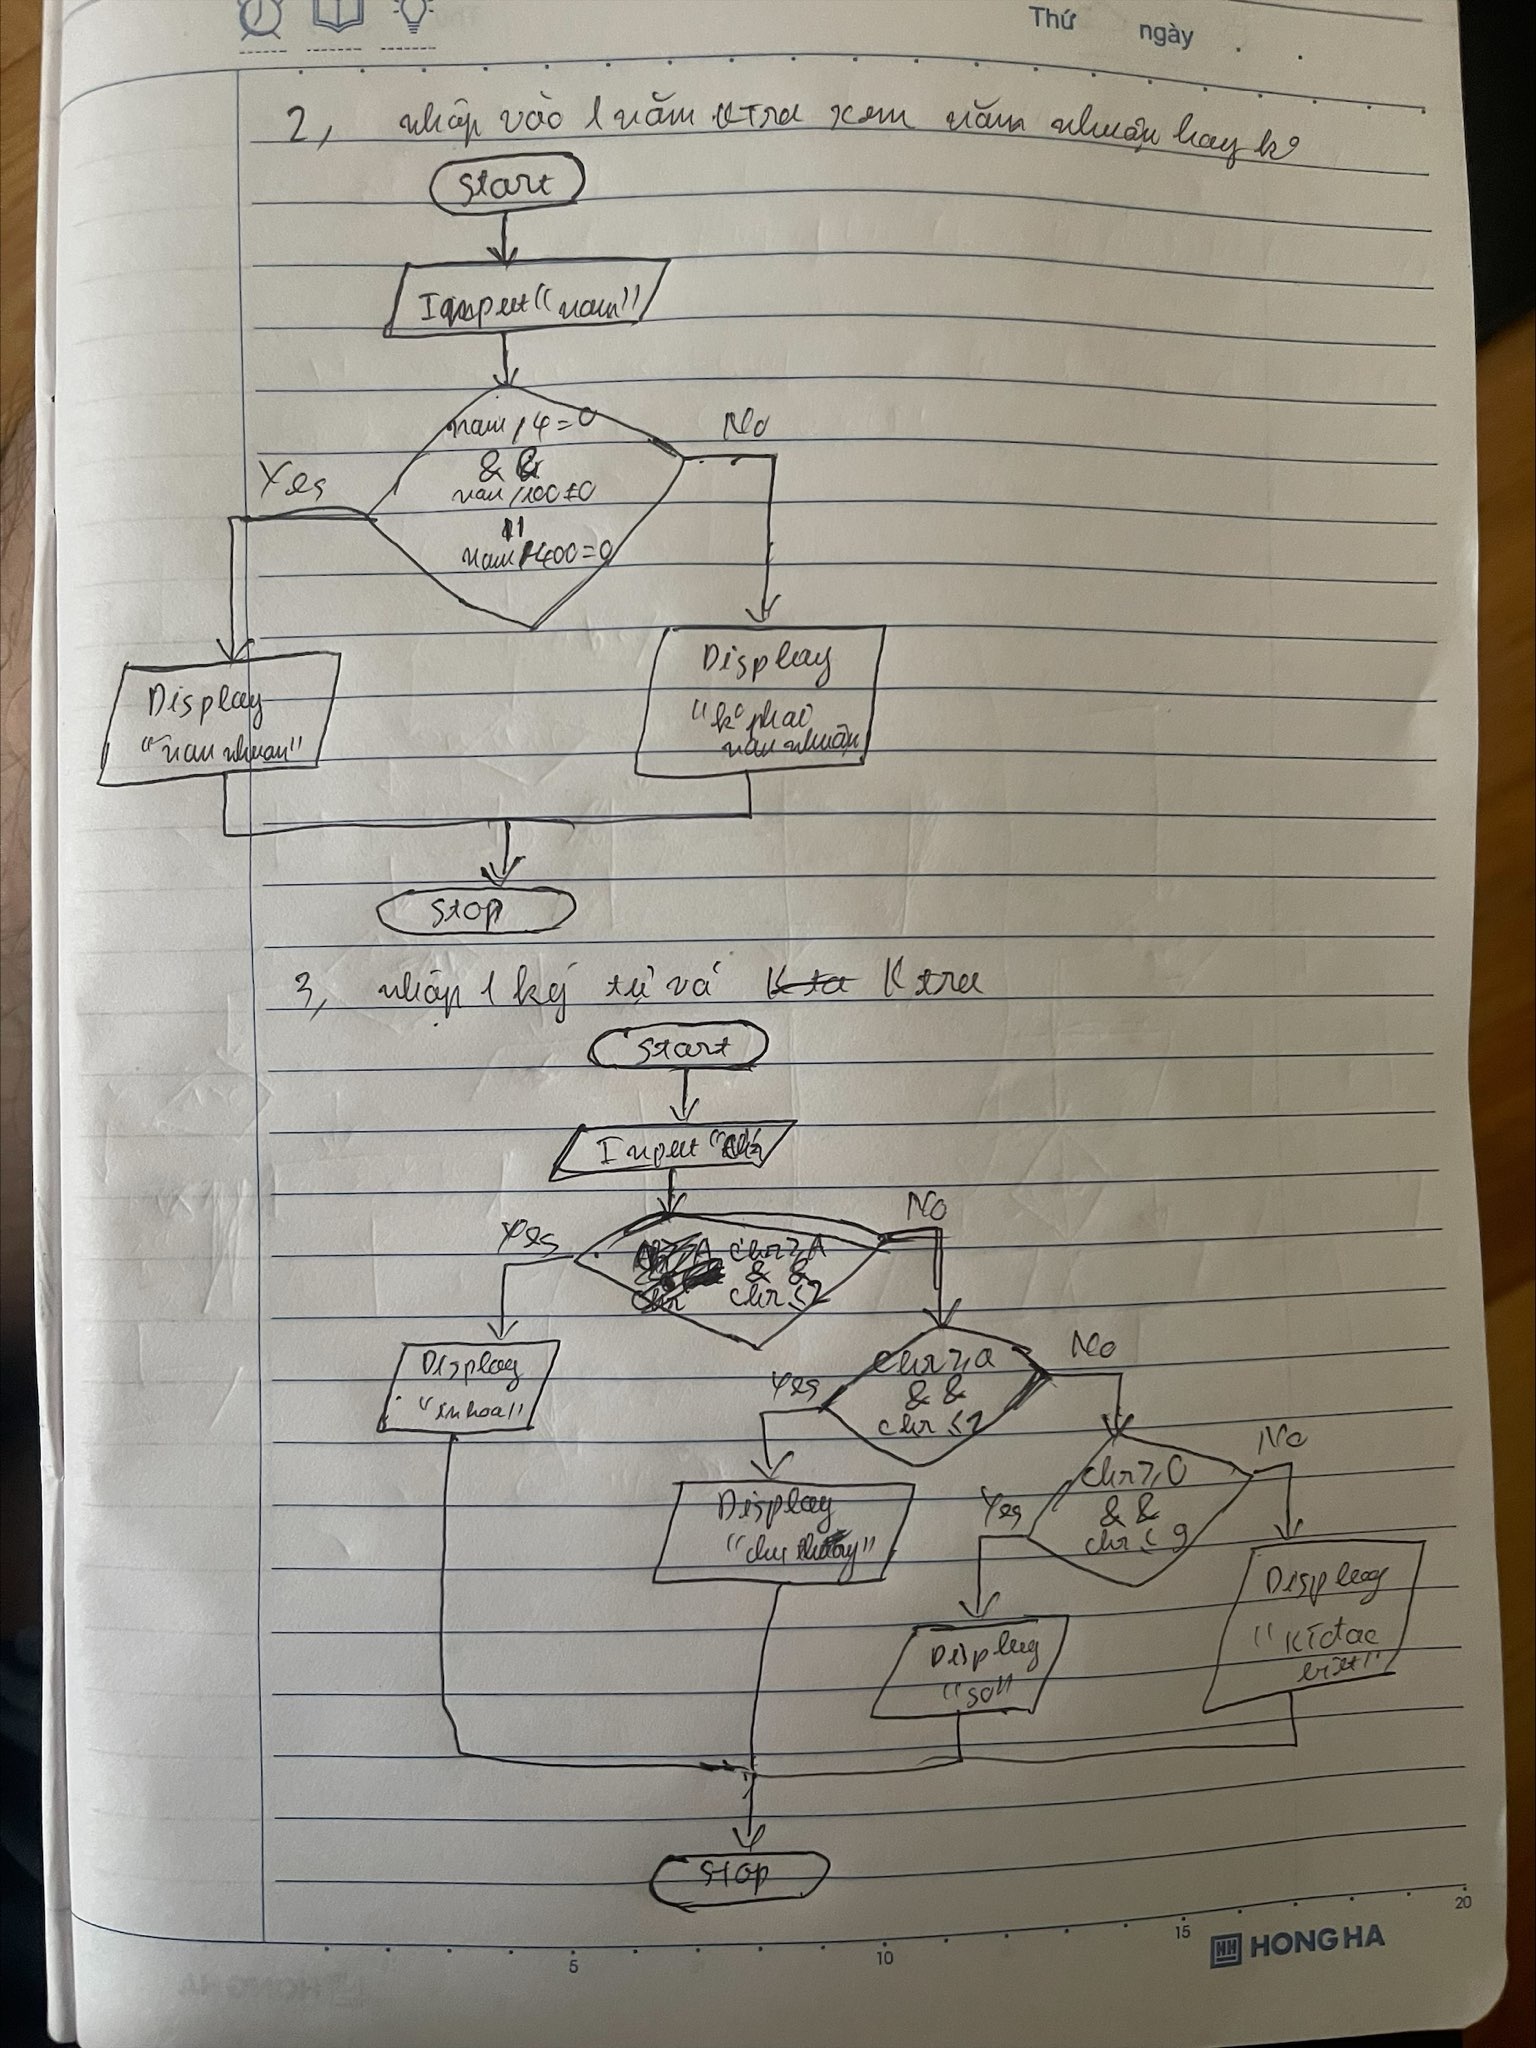 Thứ ngày
2, nhập vào 1 năm Ktra xem năm nhuận hay k°
start
Input "nam"
nam / 4 = 0
&&
nam / 100 ≠ 0
||
nam / 400 = 0
Yes
No
Display
"nam nhuan"
Display
"k° phai
năm nhuận
stop
3, nhập 1 ký tự và Ktra
start
Input
Yes
chr ≥ A
&&
chr ≤ Z
No
Display
"in hoa"
Yes
chr ≥ a
&&
chr ≤ z
No
Display
"chu thường"
Yes
chr ≥ 0
&&
chr ≤ 9
No
Display
"so"
Display
"Kí đac
biet"
stop
5 10 15 20
HH HONG HA